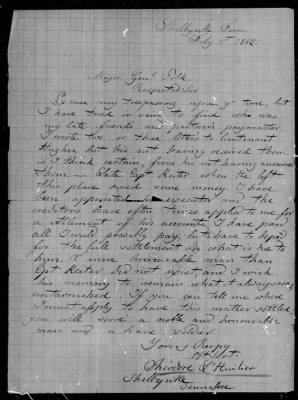 Shelbyville Tenn.
Feby. 1st 1863.
Major Genl. Polk
Respected Sir
Excuse my trespassing upon yr time, but
I have tried in vain to find who was
my late friends and partner's paymaster.
I wrote two or three letters to Lieutenant
Hughes, but his not having received them
is I think certain, from his not having answered
them — Capt Reiter when he left
this place owed some money. I have
been appointed his executor and the
creditors have often times applied to me for
a settlement of his accounts. I have paid
all I could possibly pay, to have to depend
for the full settlement on what is due to
him. A more honourable man than
Capt Reiter did not exist, and I wish
his memory to remain what it always was
untarnished. If you can tell me where
I must apply to have this matter settled
you will serve a noble and honourable
man and a brave soldier
Yours Respy
Obt Svt
Theodore
Shelbyville
Tennessee